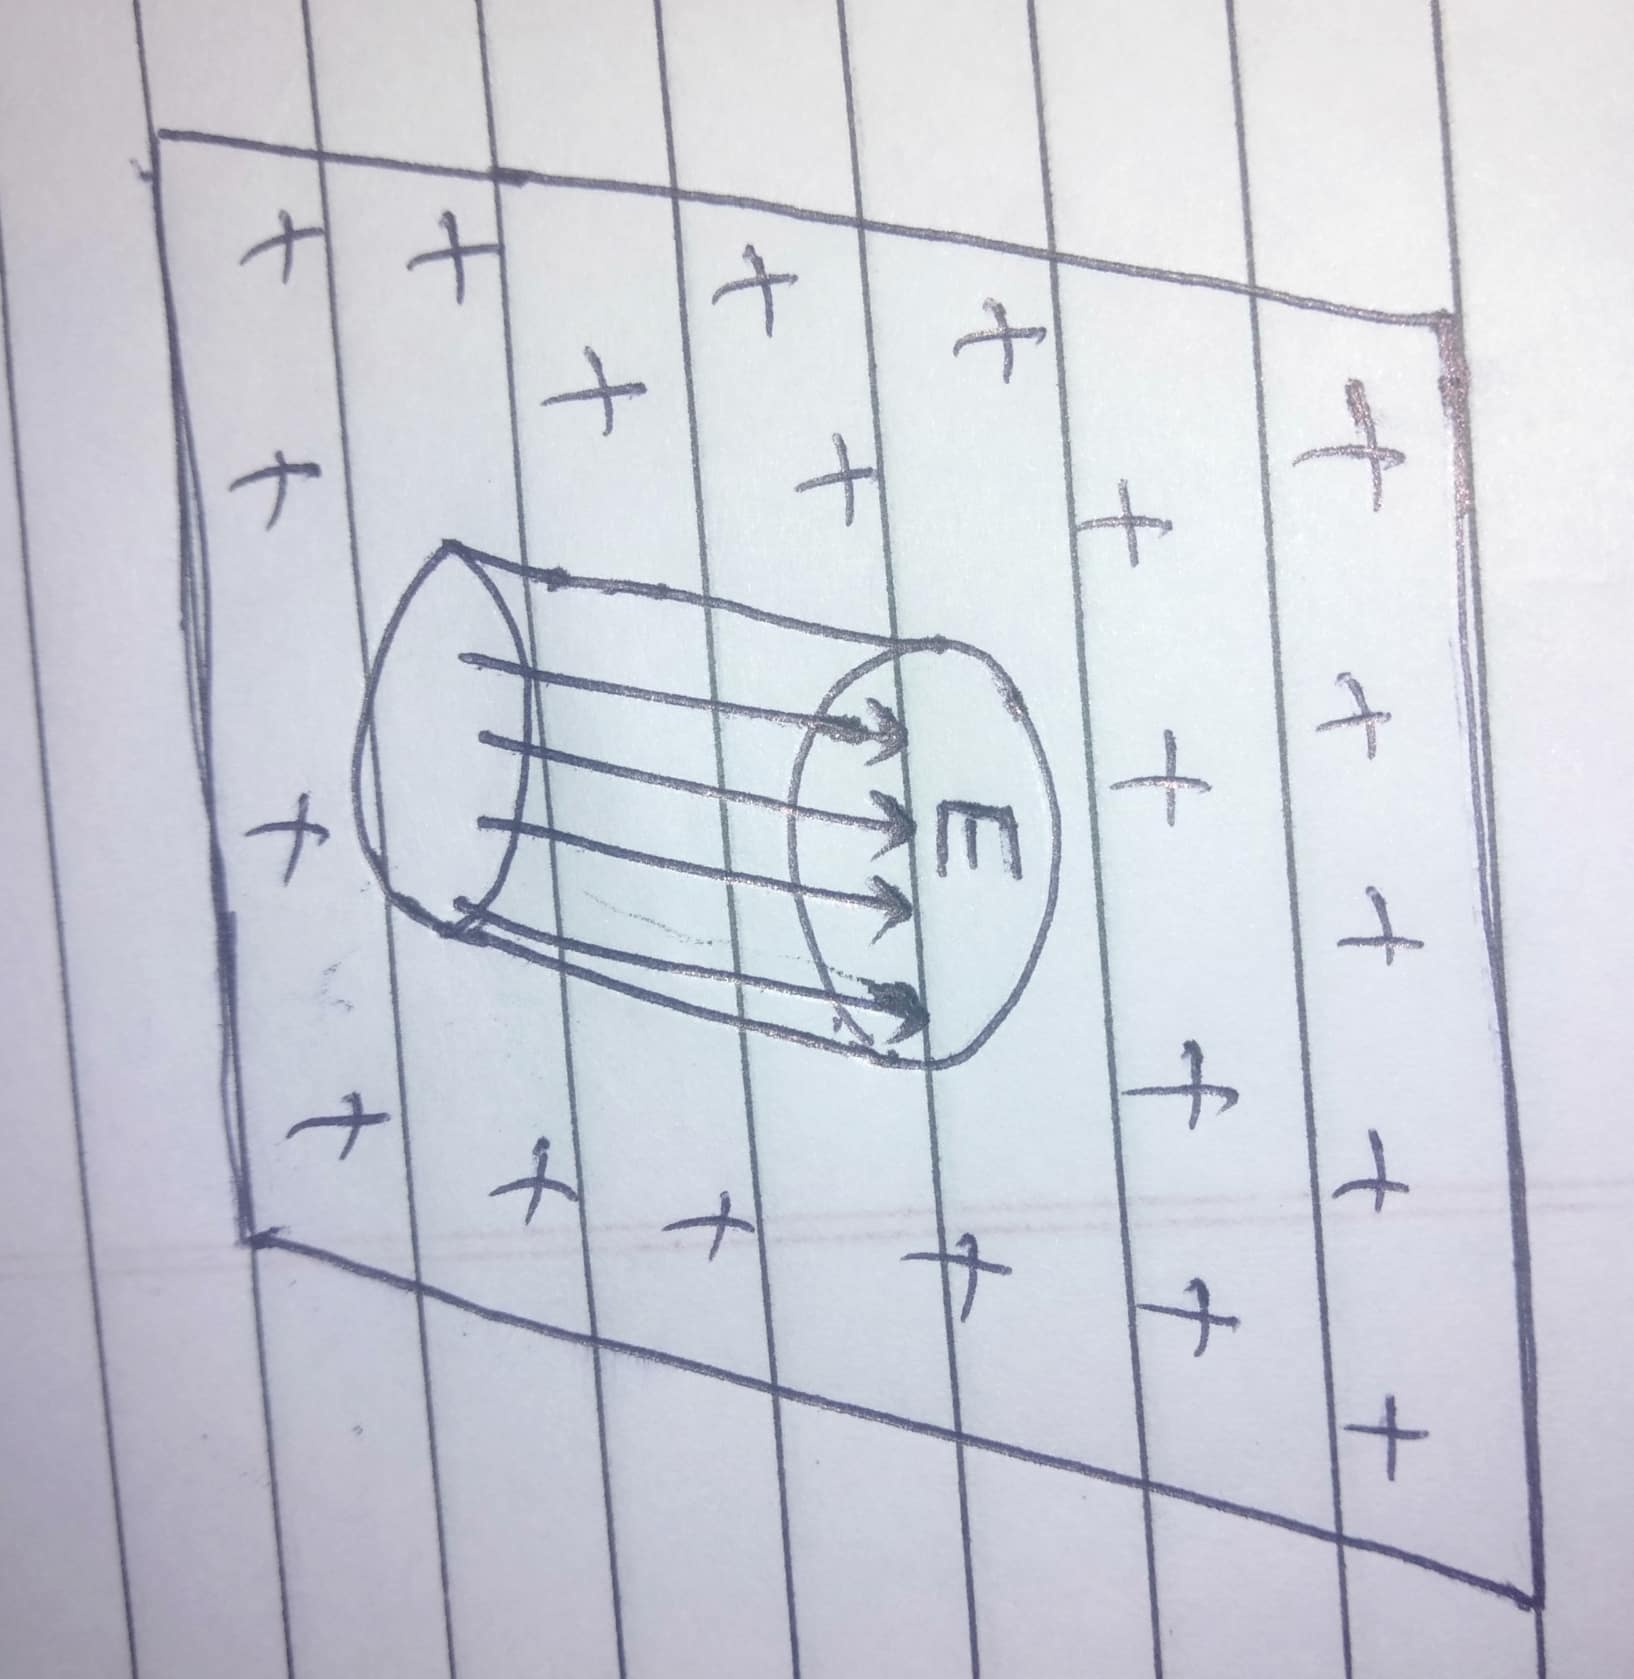 + + + + +
+ + + +
+ E +
+
+ +
+ +
+
+ + + +